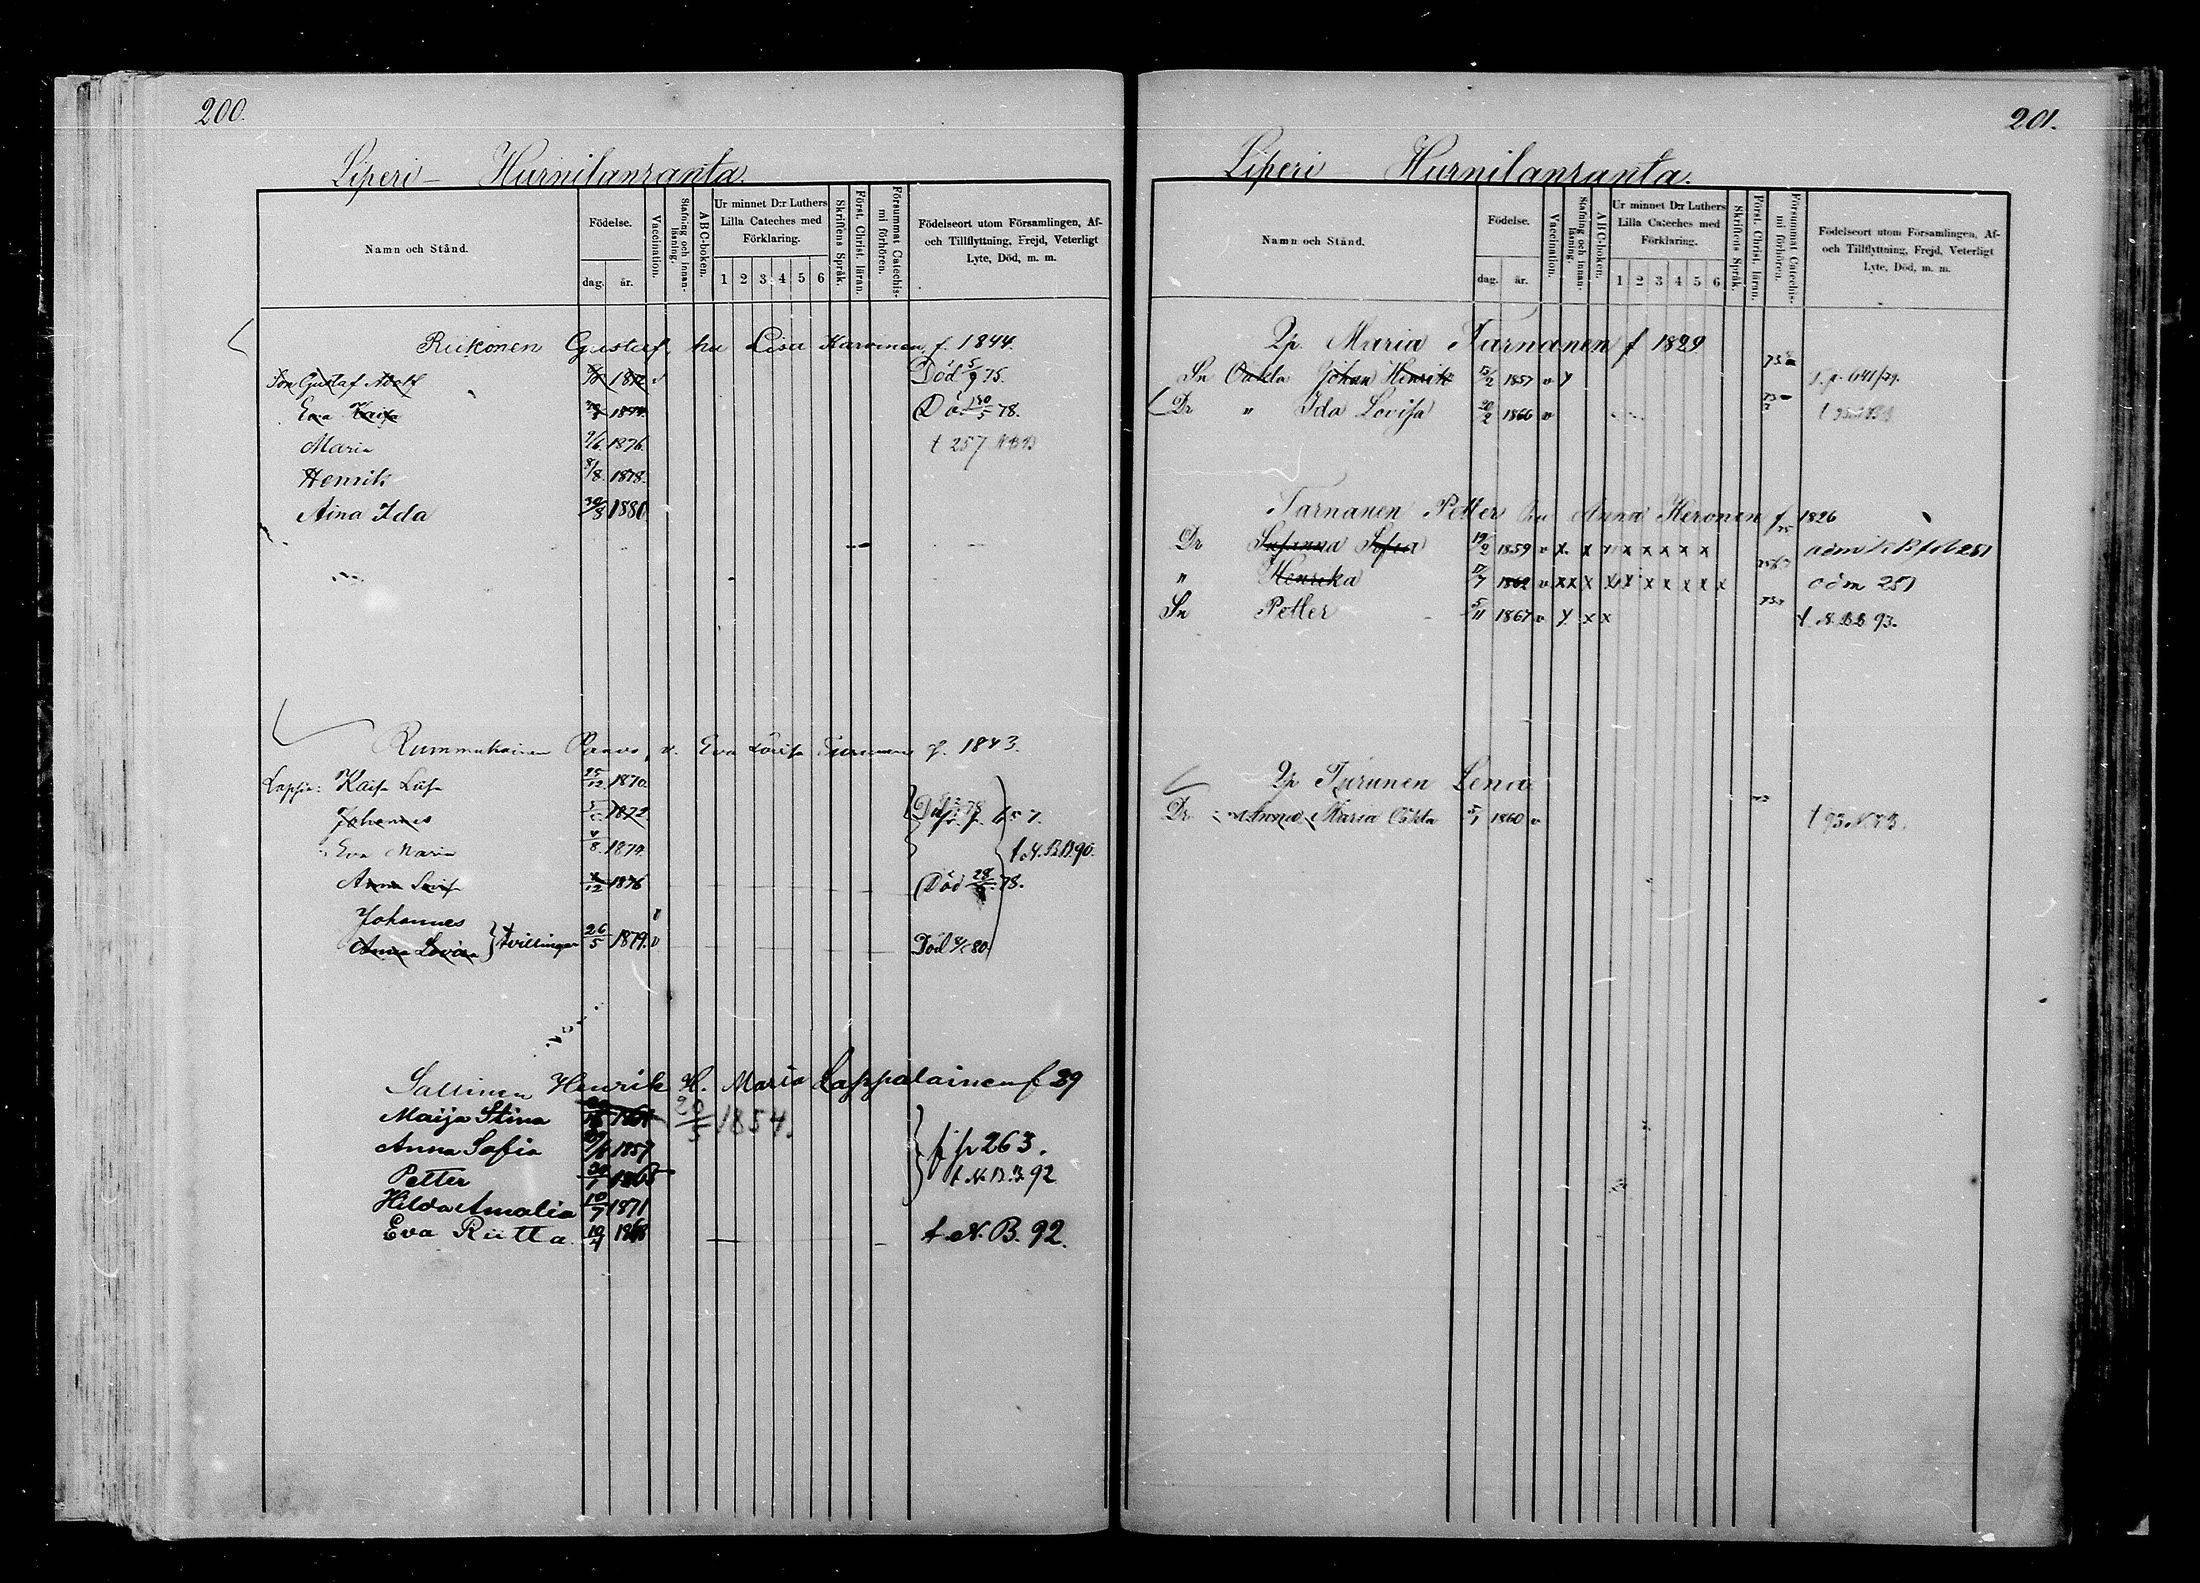 200.
Liperi – Hurnilanranta.
Namn och Stånd.
Födelse.
dag. år.
Vaccination.
Stafning och innanläsning.
ABC-boken.
Ur minnet D:r Luthers Lilla Cateches med Förklaring.
1 2 3 4 5 6
Skriftens Språk.
Först. Christ. läran.
Försummat Catechismi förhören.
Födelseort utom Församlingen, Af- och Tillflyttning, Frejd, Veterligt Lyte, Död, m. m.
Riikonen Gustaf, hu Lisa Karvinen f. 1844.
Son Gustaf Adolf 1872 v Död 5/9 75.
Eva Kaisa 1874 Död 30/5 78.
Maria 9/6 1876. t 257 NBB
Henrik 8/8. 1878.
Aina Ida 30/3 1880
Rummukainen Paavo, v. Eva Lovisa Turunen f. 1843.
Lapsia: Kaisa Liisa 25/12 1870
Johannes 1872 78
Eva Maria 4/8. 1874. t. N.B.B. 90.
Anna Lovisa 4/12 1876 Död 28/ 78.
Johannes
Anna Lovisa } tvillingar 26/5 1879. v Död 80.
Sallinen Henrik H. Maria Lappalainen f 29
Maija Stina 20/5 1854.
Anna Sofia 1857 f p 263.
Petter 30/1 1865 t. N. B. B. 92
Hilda Amalia 10/7 1871
Eva Riitta. 10/4 1868 t. N. B. 92.
201.
Liperi Hurnilanranta.
Namn och Stånd.
Födelse.
dag. år.
Vaccination.
Stafning och innanläsning.
ABC-boken.
Ur minnet D:r Luthers Lilla Cateches med Förklaring.
1 2 3 4 5 6
Skriftens Språk.
Först. Christ. läran.
Försummat Catechismi förhören.
Födelseort utom Församlingen, Af- och Tillflyttning, Frejd, Veterligt Lyte, Död, m. m.
Qp. Maria Tarnanen f 1829
Sn Oäkta Johan Henrik 15/2 1857 v y 73
Dr " Ida Lovisa 20/2 1866 v 73
Tarnanen Petter hu Anna Keronen f 1826
Dr Susanna Sofia 19/2 1859 v x x x x x x x x adm K B fol 251
" Henrika 17/7 1862 v x x x x x x x x x x adm 251
Sn Petter 5/11 1867 v y x x 73 t. N. B B 93.
Qp Turunen Lena
Dr Anna Maria Oäkta 5/1 1860 v t 93 N.B.B.